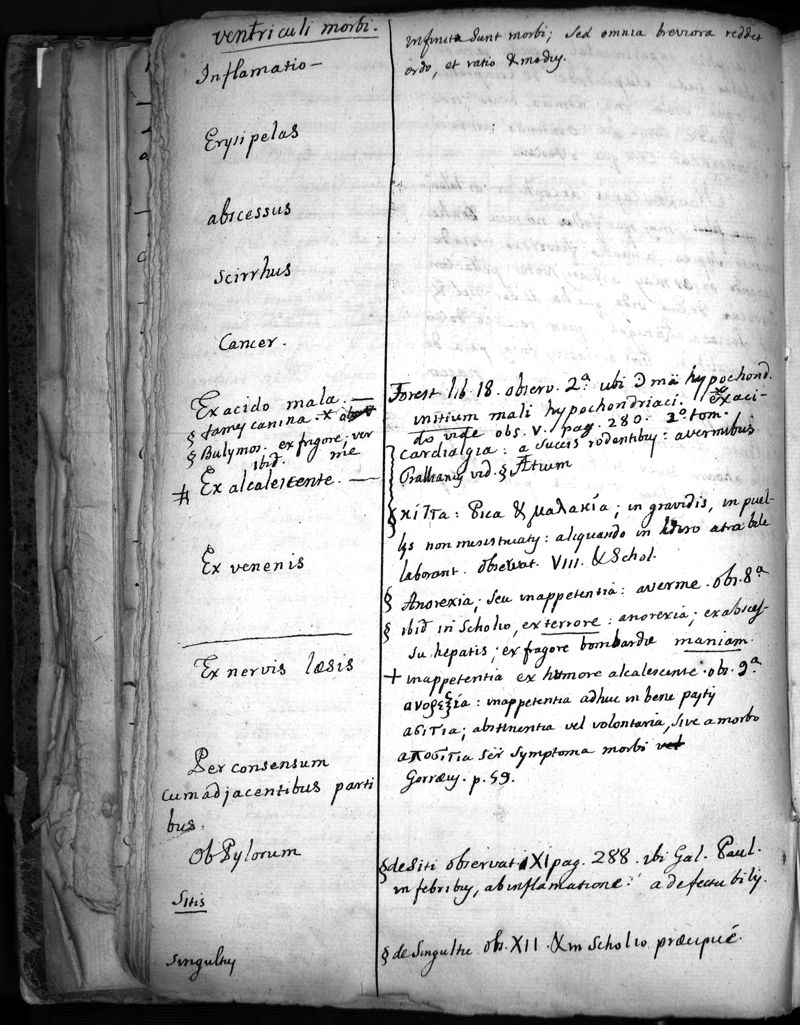 ventriculi morbi.
Inflamatio—
Erysipelas
abscessus
Scirrhus
Cancer.
Ex acido mala. —
§ famey canina. x
§ Bulymos. ex frigore; ver
ibid. me
# Ex alcalescente. —
Ex venenis
Ex nervis læsis
Per consensum
cum adjacentibus parti
bus.
Ob Pylorum
Sitis
singultuy
infinita sunt morbi; sed omnia breviora reddet
ordo, et ratio & moduy.
Forest lib. 18. observ. 2ª. ubi hypochond.
initium mali hypochondriaci. Ex aci-
do vide obs. V. pag. 280. 2º tom.
cardialgia: a succis rodentibuy: a vermibus
Pralliany vid. § Ætium
§ κίττα: Pica & μαλακία; in gravidis, in puel-
lys non mensstruaty: aliquando in viro atra bile
laborant. observat. VIII. & Schol.
§ Anorexia; seu inappetentia: a verme. ob. 8ª
§ ibid in Scholio, ex terrore: anorexia; ex absces-
su hepatis; ex fragore bombardæ maniam.
+ inappetentia ex humore alcalescente. ob. 9ª
ανορεξία: inappetentia adhuc in bene pasty
ασιτια; abstinentia vel voluntaria, sive a morbo
αποσιτια seu symptoma morbi
Gorræuy. p. 59.
§ de Siti observat. XI pag. 288. ibi Gal. Paul.
in febribuy, ab inflamatione: a defectu bily.
§ de Singultu ob. XII. & in Scholio præcipuè.